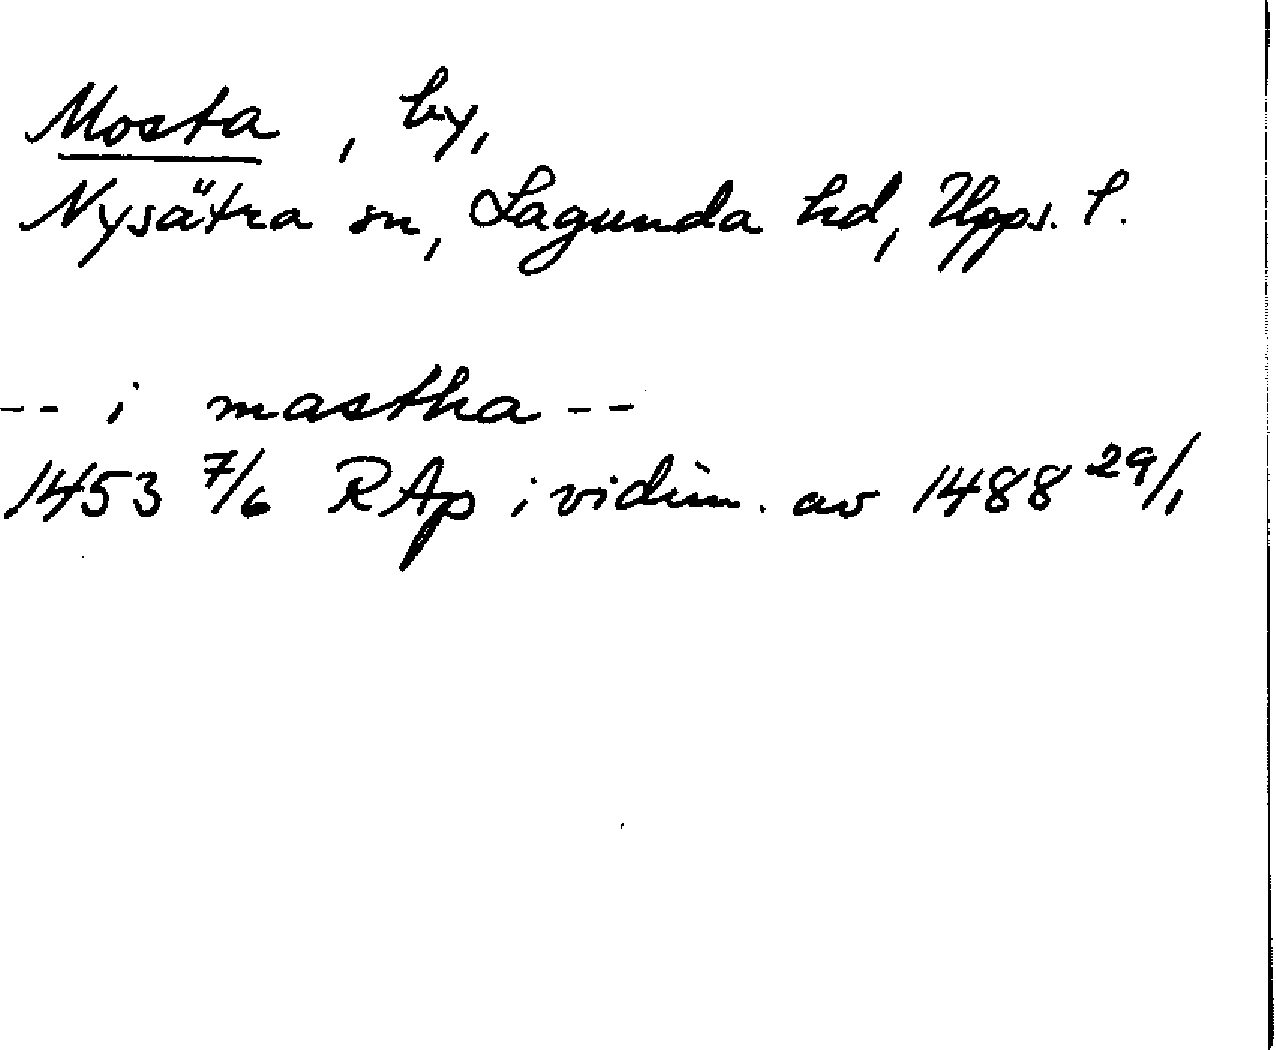 Mosta, by,
Nysätra sn, Lagunda hd, Upps. l.
-- i mastha --
1453 7/6 RAp i vidim. av 1488 29/1